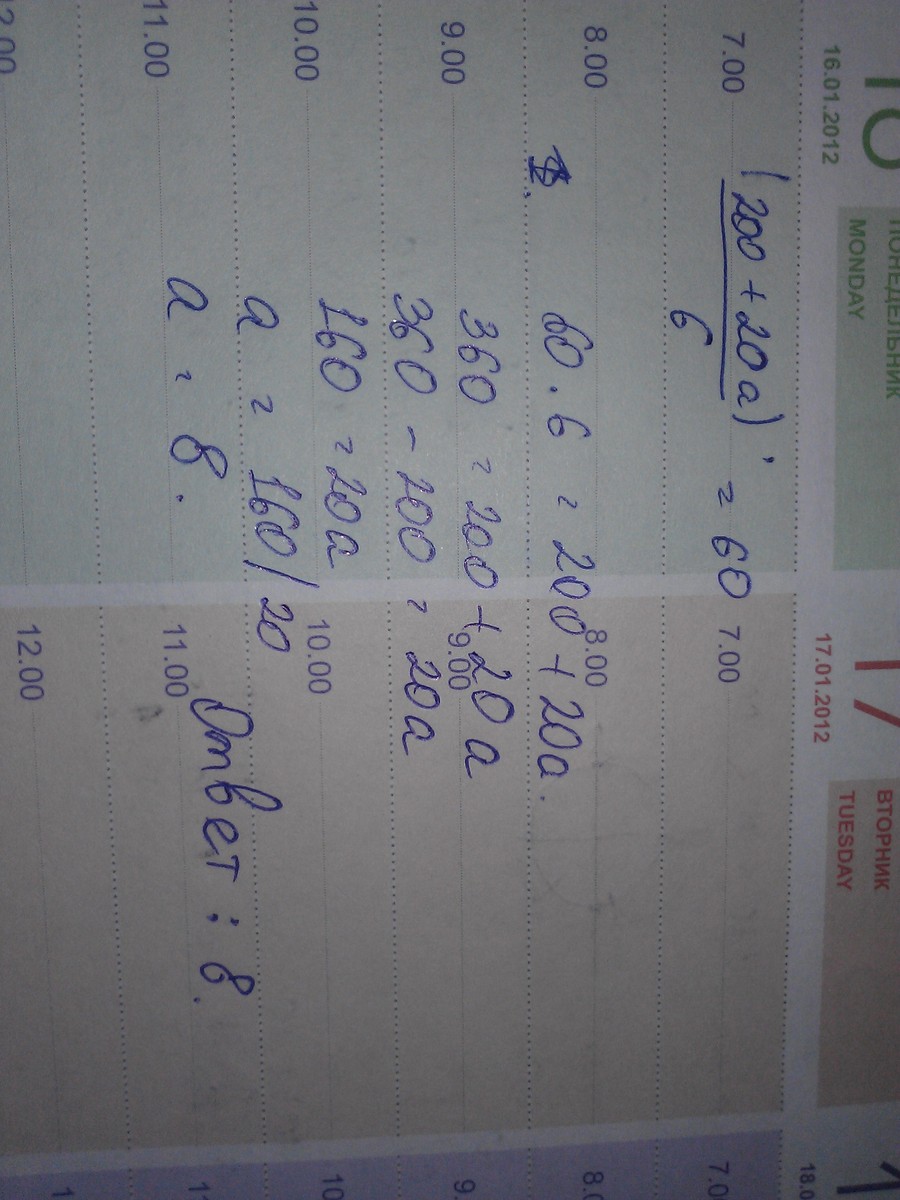 16 ПОНЕДЕЛЬНИК
16.01.2012 MONDAY
17 ВТОРНИК
17.01.2012 TUESDAY
18.0
7.00 7.00 7.0
(200 + 20a)' = 60
6
8.00 8.00 8.0
60 . 6 = 200 + 20a.
9.00 9.00 9.
360 = 200 + 20a
360 - 200 = 20a
10.00 10.00 10
160 = 20a
a = 160/20
11.00 11.00 11
a = 8.
Ответ: 8.
12.00 12.00 1